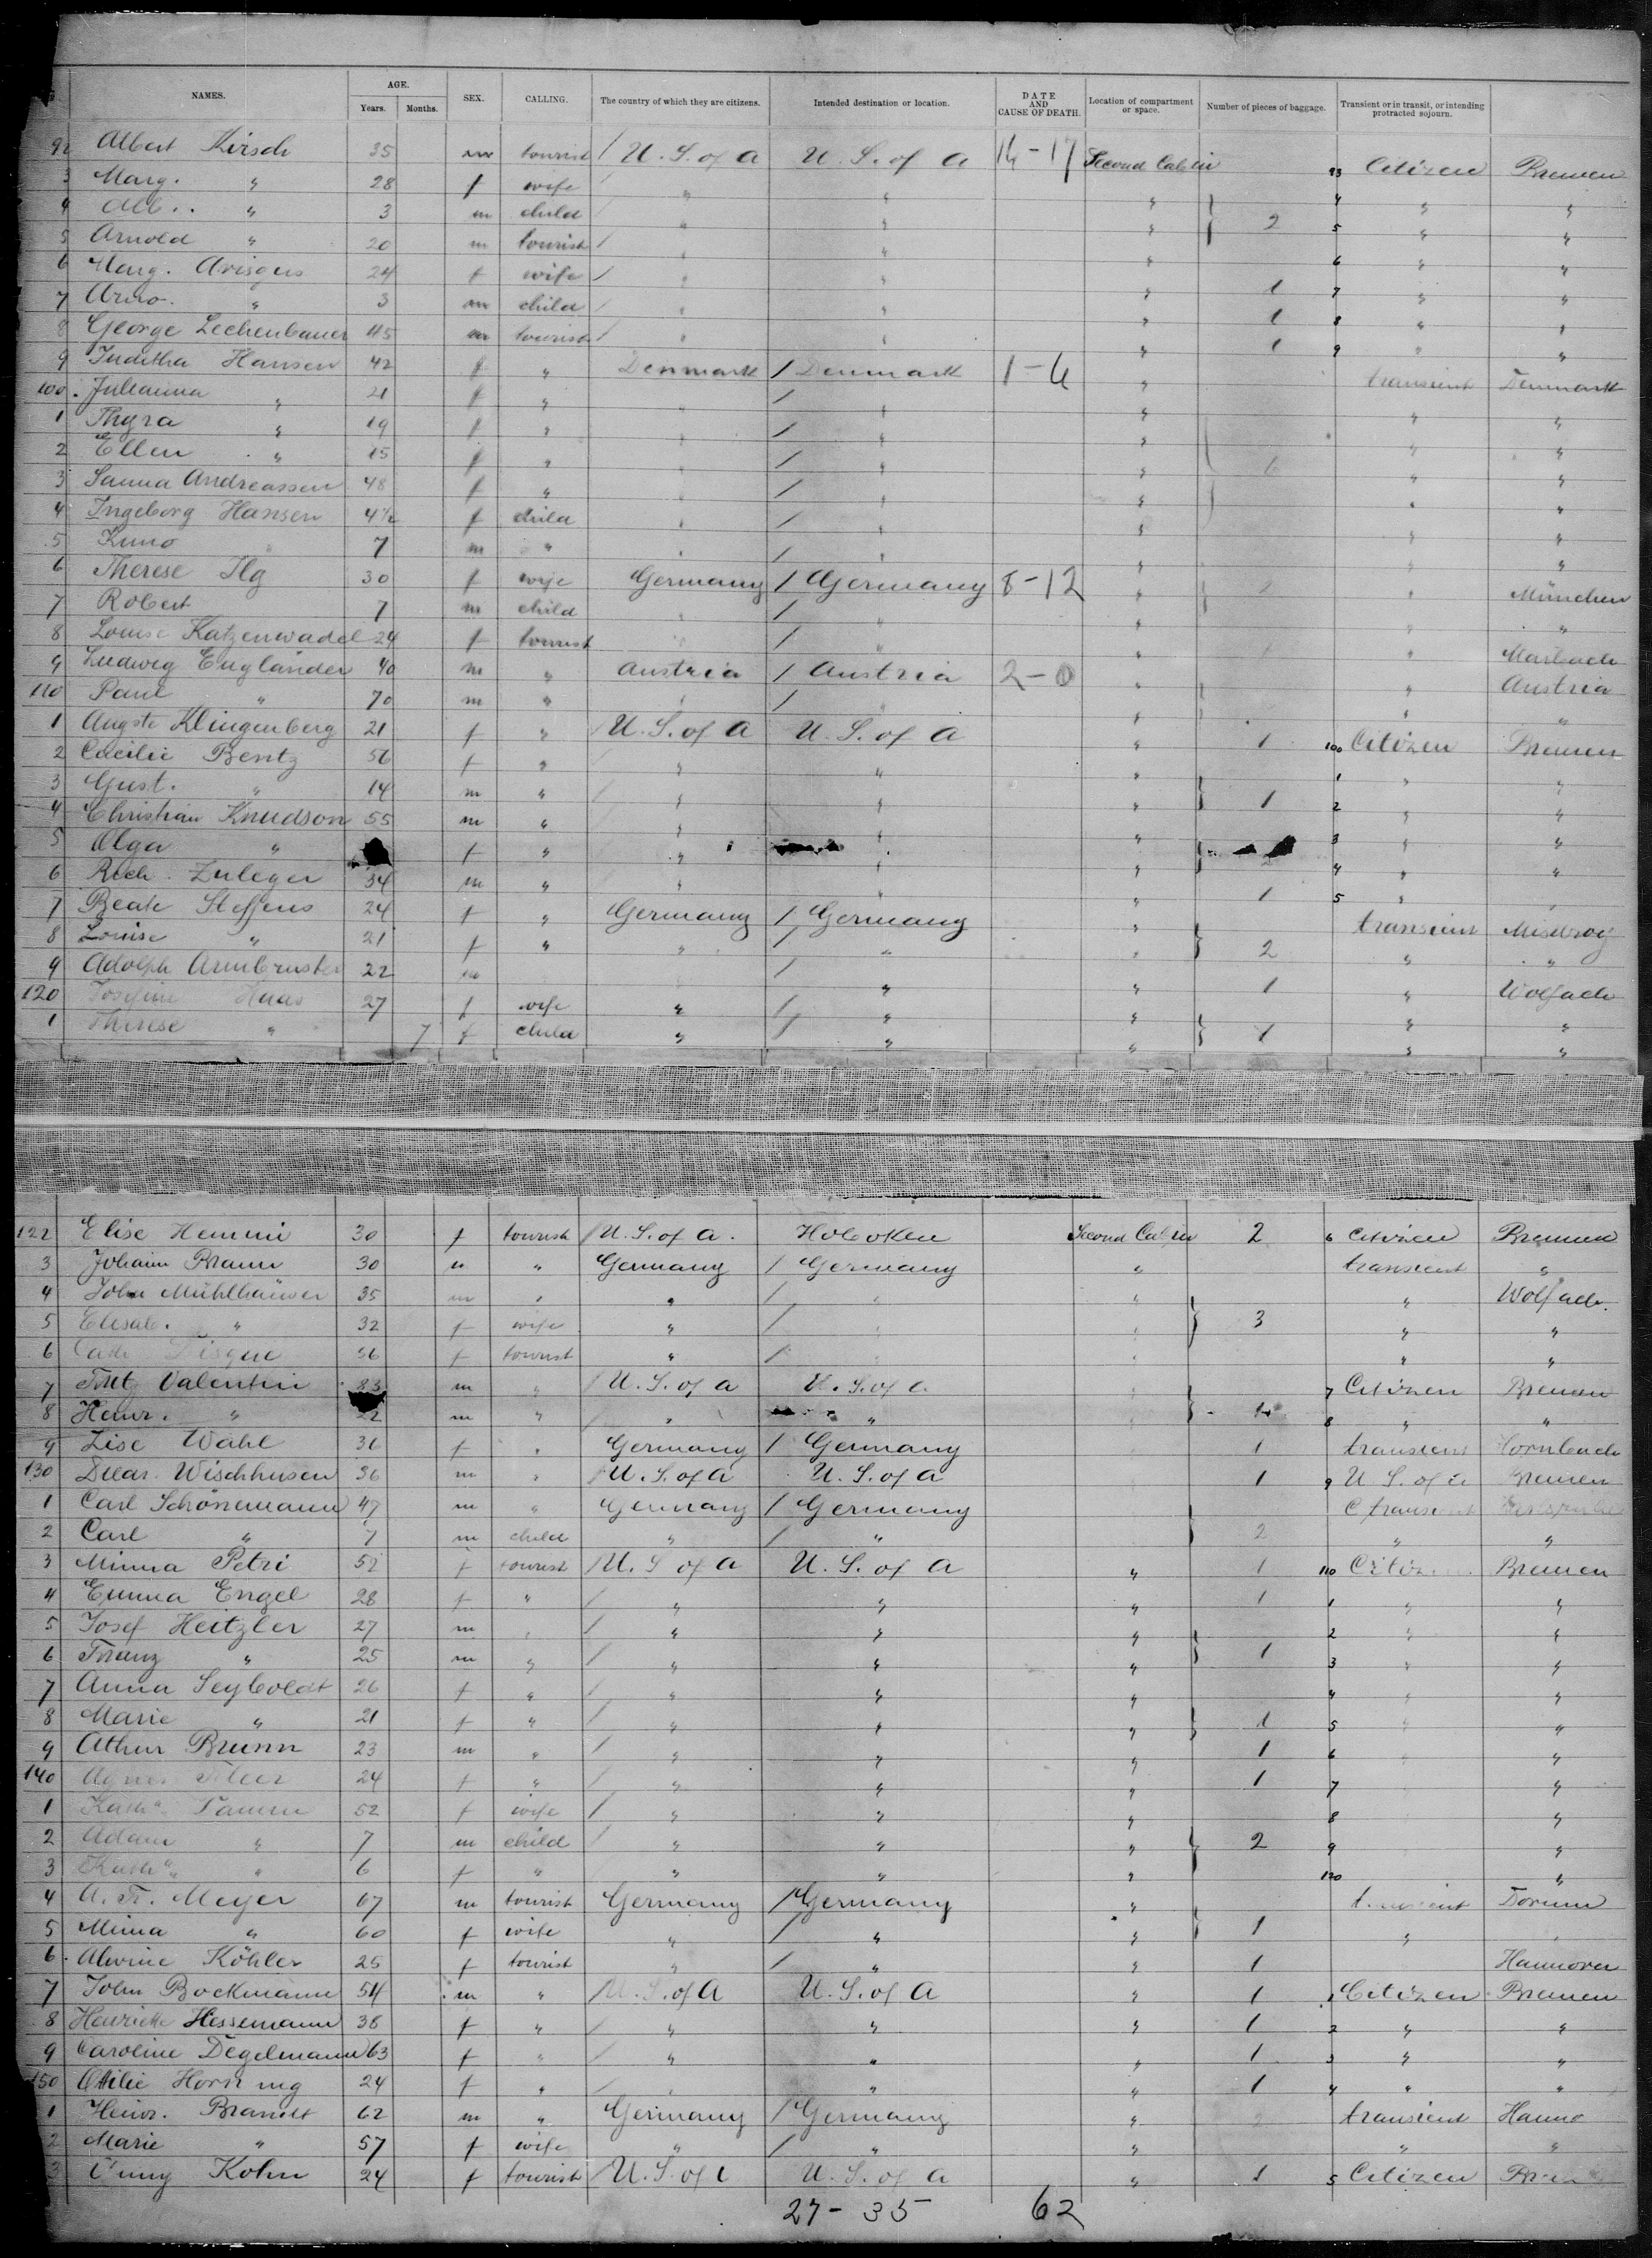 NAMES. AGE. Years. Months. SEX. CALLING. The country of which they are citizens. Intended destination or location. DATE AND CAUSE OF DEATH. Location of compartment or space. Number of pieces of baggage. Transient or in transit, or intending protracted sojourn.
92 Albert Kirsch 35 m tourist / U. S. of A U. S. of A 14-17 Second Cabin 93 Citizen Bremen
3 Marg. " 28 f wife / " " " 4 " "
4 Alb.. " 3 m child / " " " 2 5 " "
5 Arnold " 20 m tourist / " " " 6 " "
6 Marg. 24 f wife / " " " 1 7 " "
7 Arno. " 3 m child / " " " 1 8 " "
8 George Lechenbauer 45 m tourist / " " " 1 9 " "
9 Juditha Hansen 42 f " Denmark / Denmark 1-6 " transient Denmark
100 Julianna " 21 f " " / " " " "
1 Thyra " 19 f " " / " " " "
2 Ellen " 15 f " " / " " 6 " "
3 Sanna Andreassen 48 f " " / " " " "
4 Ingeborg Hansen 4½ f child " / " " " "
5 Kuno " 7 m " " / " " " "
6 Therese Ilg 30 f wife Germany / Germany 8-12 " 2 " München
7 Robert 7 m child " / " " " "
8 Louise Katzenwadel 24 f tourist " / " " " Marbach
9 Ludwig Engländer 40 m " Austria / Austria 2-0 " " Austria
110 Paul " 70 m " " / " " " "
1 Augste Klingenberg 21 f " / U. S. of A U. S. of A " 1 100 Citizen Bremen
2 Cäcilie Bentz 56 f " / " " " 1 " "
3 Gust. " 14 m " / " " " 1 2 " "
4 Christian Knudson 55 m " " " " 3 " "
5 Olga " f " " " " 4 " "
6 Rich. Zuleger 34 m " " " " 1 5 "
7 Beate Steffens 24 f " Germany / Germany " transient Misdroy
8 Louise " 21 f " " / " " 2 " "
9 Adolph Armbruster 22 m / " " 1 " Wolfach
120 Josefine Haas 27 f wife " / " " " "
1 Therese " 7 f child " / " " 1 " "
122 Elise Hemmi 30 f tourist / U. S. of A. Hoboken Second Cabin 2 6 Citizen Bremen
3 Johann Braun 30 m " Germany / Germany " transient "
4 John Mühlhäuser 35 m " " / " " " Wolfach.
5 Elisab. " 32 f wife " / " " 3 " "
6 56 f tourist " / " " " "
7 Fritz Valentin 83 m " / U. S. of A U. S. of A " 7 Citizen Bremen
8 Heinr. " 22 m " " " 8 " "
9 Lise Wahl 36 f " Germany / Germany 1 transient Hornbach
130 Wischhusen 36 m " / U. S. of A U. S. of A 1 9 U. S. of A Bremen
1 Carl Schönemann 47 m " Germany / Germany transient
2 Carl " 7 m child " / " 2 " "
3 Minna Petri 52 f tourist / U. S of A U. S. of A " 1 110 Citizen Bremen
4 Emma Engel 28 f " / " " " 1 1 " "
5 Josef Heitzler 27 m " / " " " 2 " "
6 Franz " 25 m " / " " " 1 3 " "
7 Anna Seyboldt 26 f " / " " " 4 " "
8 Marie " 21 f " / " " " 1 5 " "
9 Athur Brunn 23 m " / " " " 1 6 " "
140 24 f " / " " " 1 7 "
1 Kath. 52 f wife / " " " 8 "
2 Adam " 7 m child / " " " 2 9 "
3 Kath. " 6 f " " " " 120 "
4 A. Fr. Meyer 67 m tourist Germany / Germany " transient Dorum
5 Mina " 60 f wife " / " " 1 " "
6 Alwine Köhler 25 f tourist " / " " 1 Hannover
7 John Bockmann 54 m " / U. S. of A U. S. of A " 1 1 Citizen Bremen
8 Henriette Hessemann 38 f " / " " " 1 2 " "
9 Caroline Degelmann 63 f " / " " " 1 3 " "
150 Ottilie Hornung 24 f " / " " " 1 4 " "
1 Heinr. Brandt 62 m " Germany / Germany " 2 transient Hanno
2 Marie " 57 f wife " / " " " "
3 Kohn 24 f tourist / U. S. of A U. S. of A " 1 5 Citizen
27-35 62